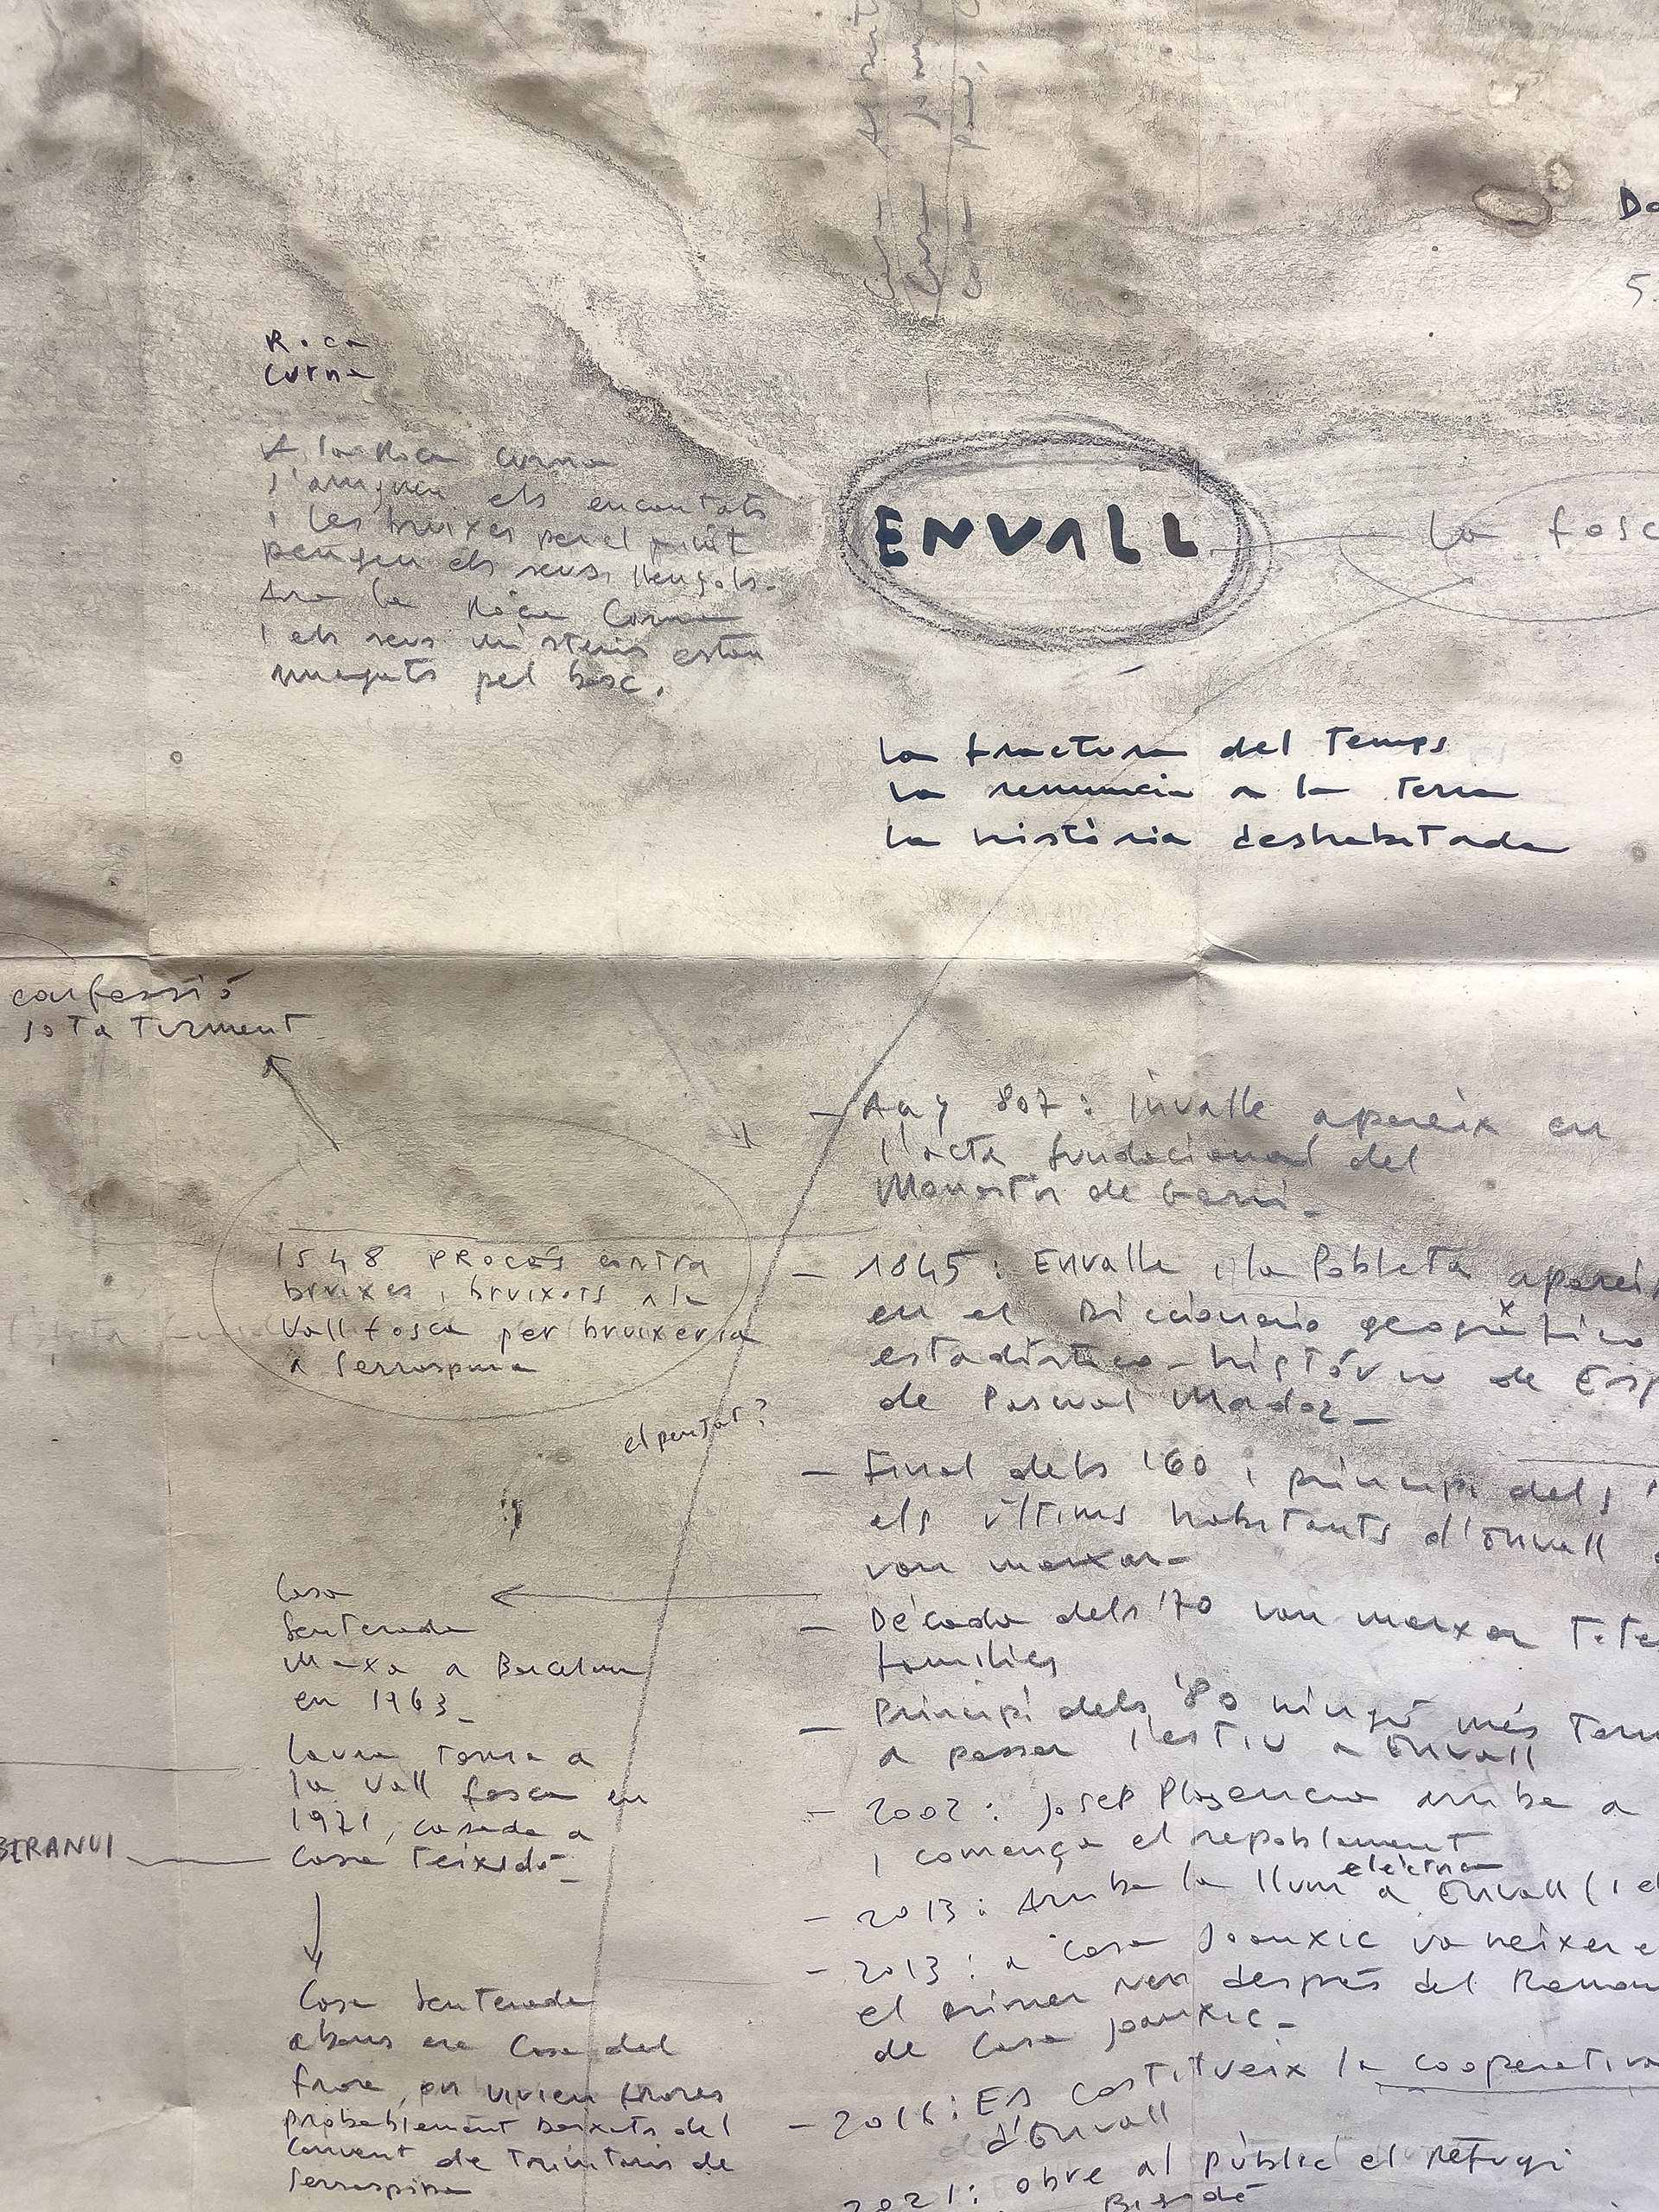 Roca
Curna
A la Roca Curna
s'amguen els encantats
i les bruixes per el
pengen els seus llençols.
Ara la Roca Corna
i els seus misteris estan
amagats pel bosc.
ENVALL
la fosc
Do
5.
la fractura del temps
la renuncia a la terra
la història deshabitada
confessió
sota turment
1548 procés contra
bruixes i bruixots a la
Vall fosca per bruixeria
a Serraspina
el penjat?
Casa
Senterada
Marxa a Barcelona
en 1963_
Laura torna a
la Vall fosca en
1971, casada a
Casa Teixidó_
BERANUI
Casa Senterada
abans era Casa del
frare, on vivien frares
probablement baixats del
Convent de Trinitaris de
Serraspina
- Any 807: Invalle apareix en
l'acta fundacional del
Monestir de Gerri_
- 1845: Envalle i la Pobleta apareix
en el Diccionario geográfico
estadístico-histórico de Esp
de Pascual Madoz_
- Final dels '60 i principi dels '
els últims habitants d'Envall
van marxar_
- Década dels '70 van marxar tote
famílies
- Principi dels '80 ningú més torn
a passar l'estiu a Envall
- 2002: Josep Plasencia arriba a
i comença el repoblament
- 2013: Arriba la llum elèctrica a Envall (i el
- 2013: a Casa Joanxic va neixer e
el primer nen després del Ramon
de Casa Joanxic_
- 2016: Es costitueix la cooperativa
d'Envall
2021: obre al públic el Refugi